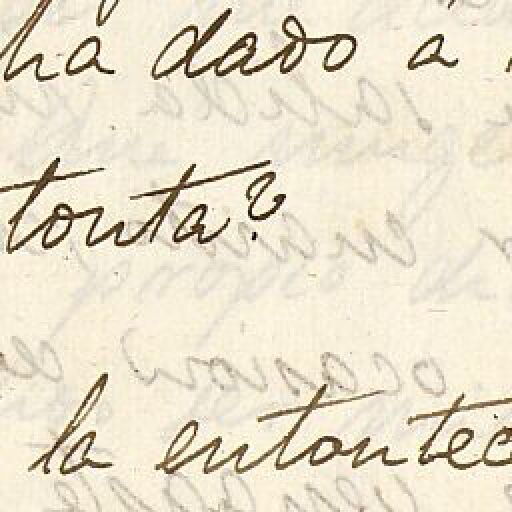 ha dado á
tonta?
la entontec